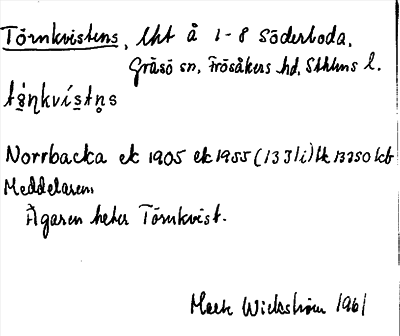 Törnkvistens, lht å 1-8 Söderboda,
Gräsö sn, Frösåkers hd, Sthlms l.
Norrbacka ek 1905 ek 1955 (13 I 1i) lk 13250 kb
Meddelaren:
Ägaren heter Törnkvist.
Mark Wickström 1961